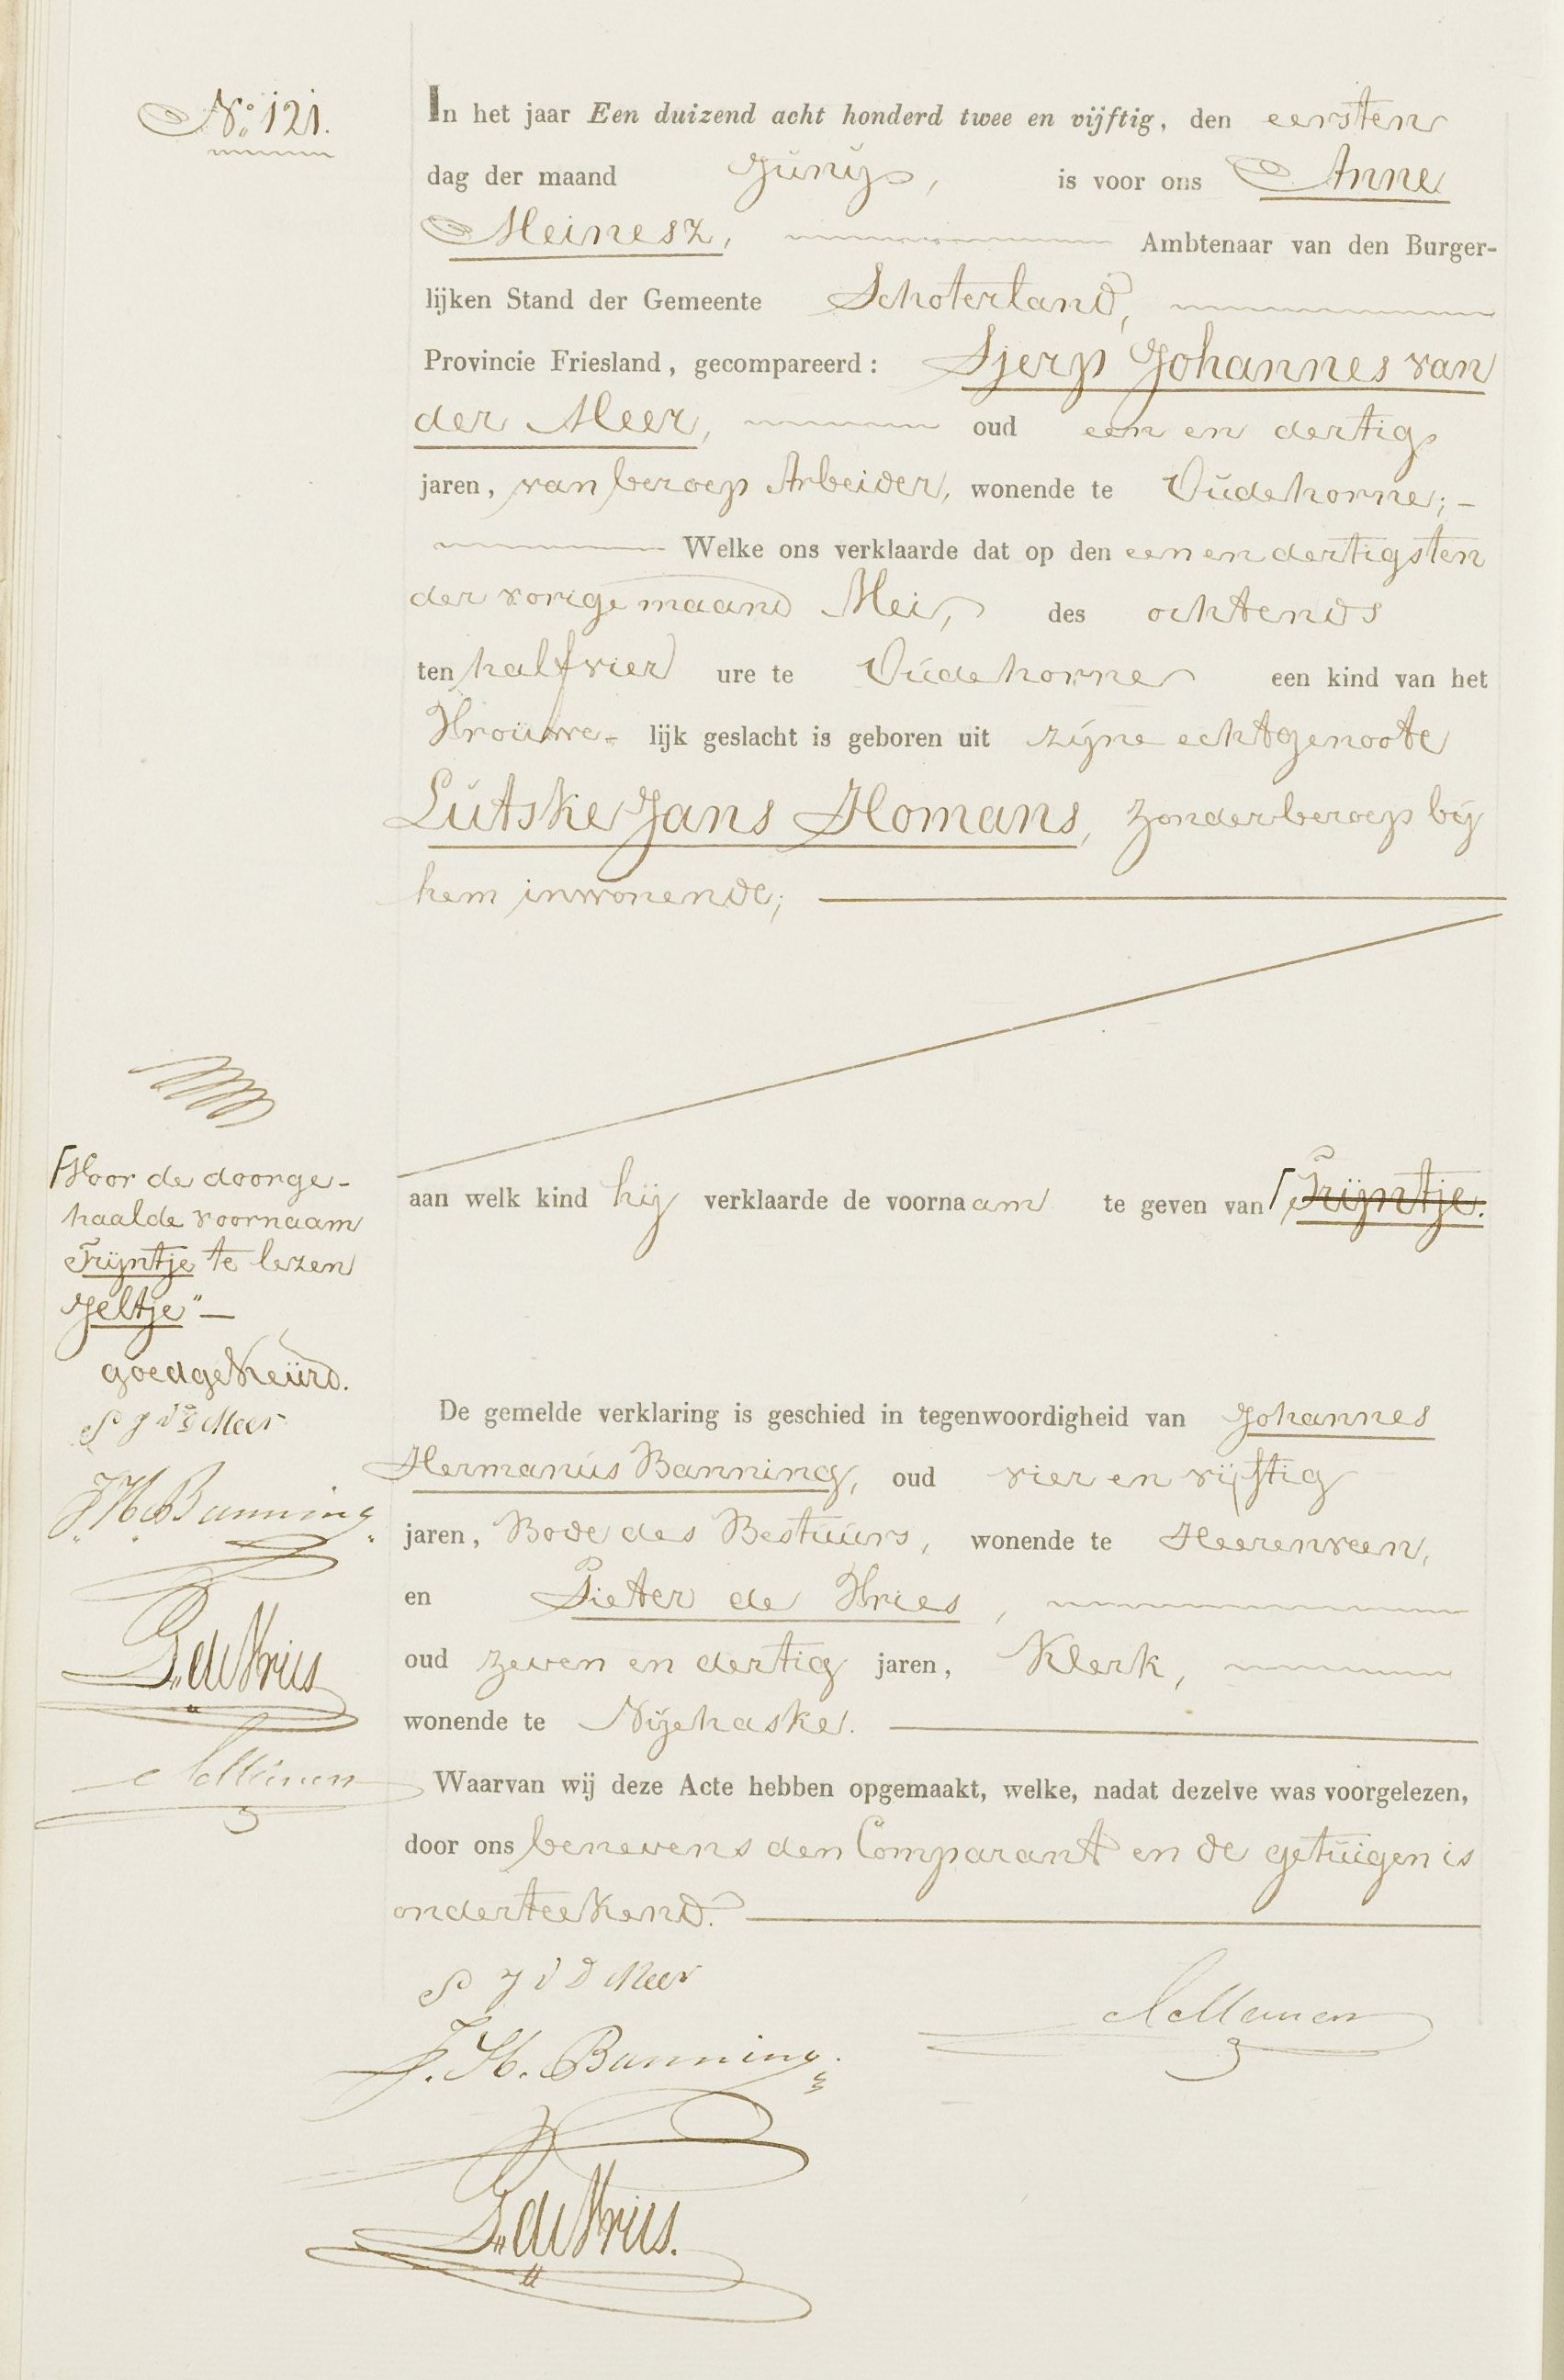 No. 121.
In het jaar Een duizend acht honderd twee en vijftig, den eersten
dag der maand Junij, is voor ons Anne
Meinesz, Ambtenaar van den Burger-
lijken Stand der Gemeente Schoterland,
Provincie Friesland, gecompareerd: Sjerp Johannes van
der Meer, oud een en dertig
jaren, van beroep Arbeider, wonende te Oudehorne; -
Welke ons verklaarde dat op den een en dertigsten
der vorige maand Mei, des ochtends
ten half vier ure te Oudehorne een kind van het
Vrouwe- lijk geslacht is geboren uit zijne echtgenoote
Lutske Jans Homans, zonder beroep bij
hem inwonende;
aan welk kind hij verklaarde de voornaam te geven van Trijntje.
Voor de doorge-
haalde voornaam
Trijntje te lezen
Jeltje" —
goedgekeurd.
S J v d Meer
J H Banning
P. de Vries
De gemelde verklaring is geschied in tegenwoordigheid van Johannes
Hermanus Banning, oud vier en vijftig
jaren, Bode des Bestuurs, wonende te Heerenveen,
en Pieter de Vries,
oud zeven en dertig jaren, Klerk,
wonende te Nijehaske.
Waarvan wij deze Acte hebben opgemaakt, welke, nadat dezelve was voorgelezen,
door ons benevens den Comparant en de getuigen is
onderteekend.
S J v D Meer
J. H. Banning.
P. de Vries.